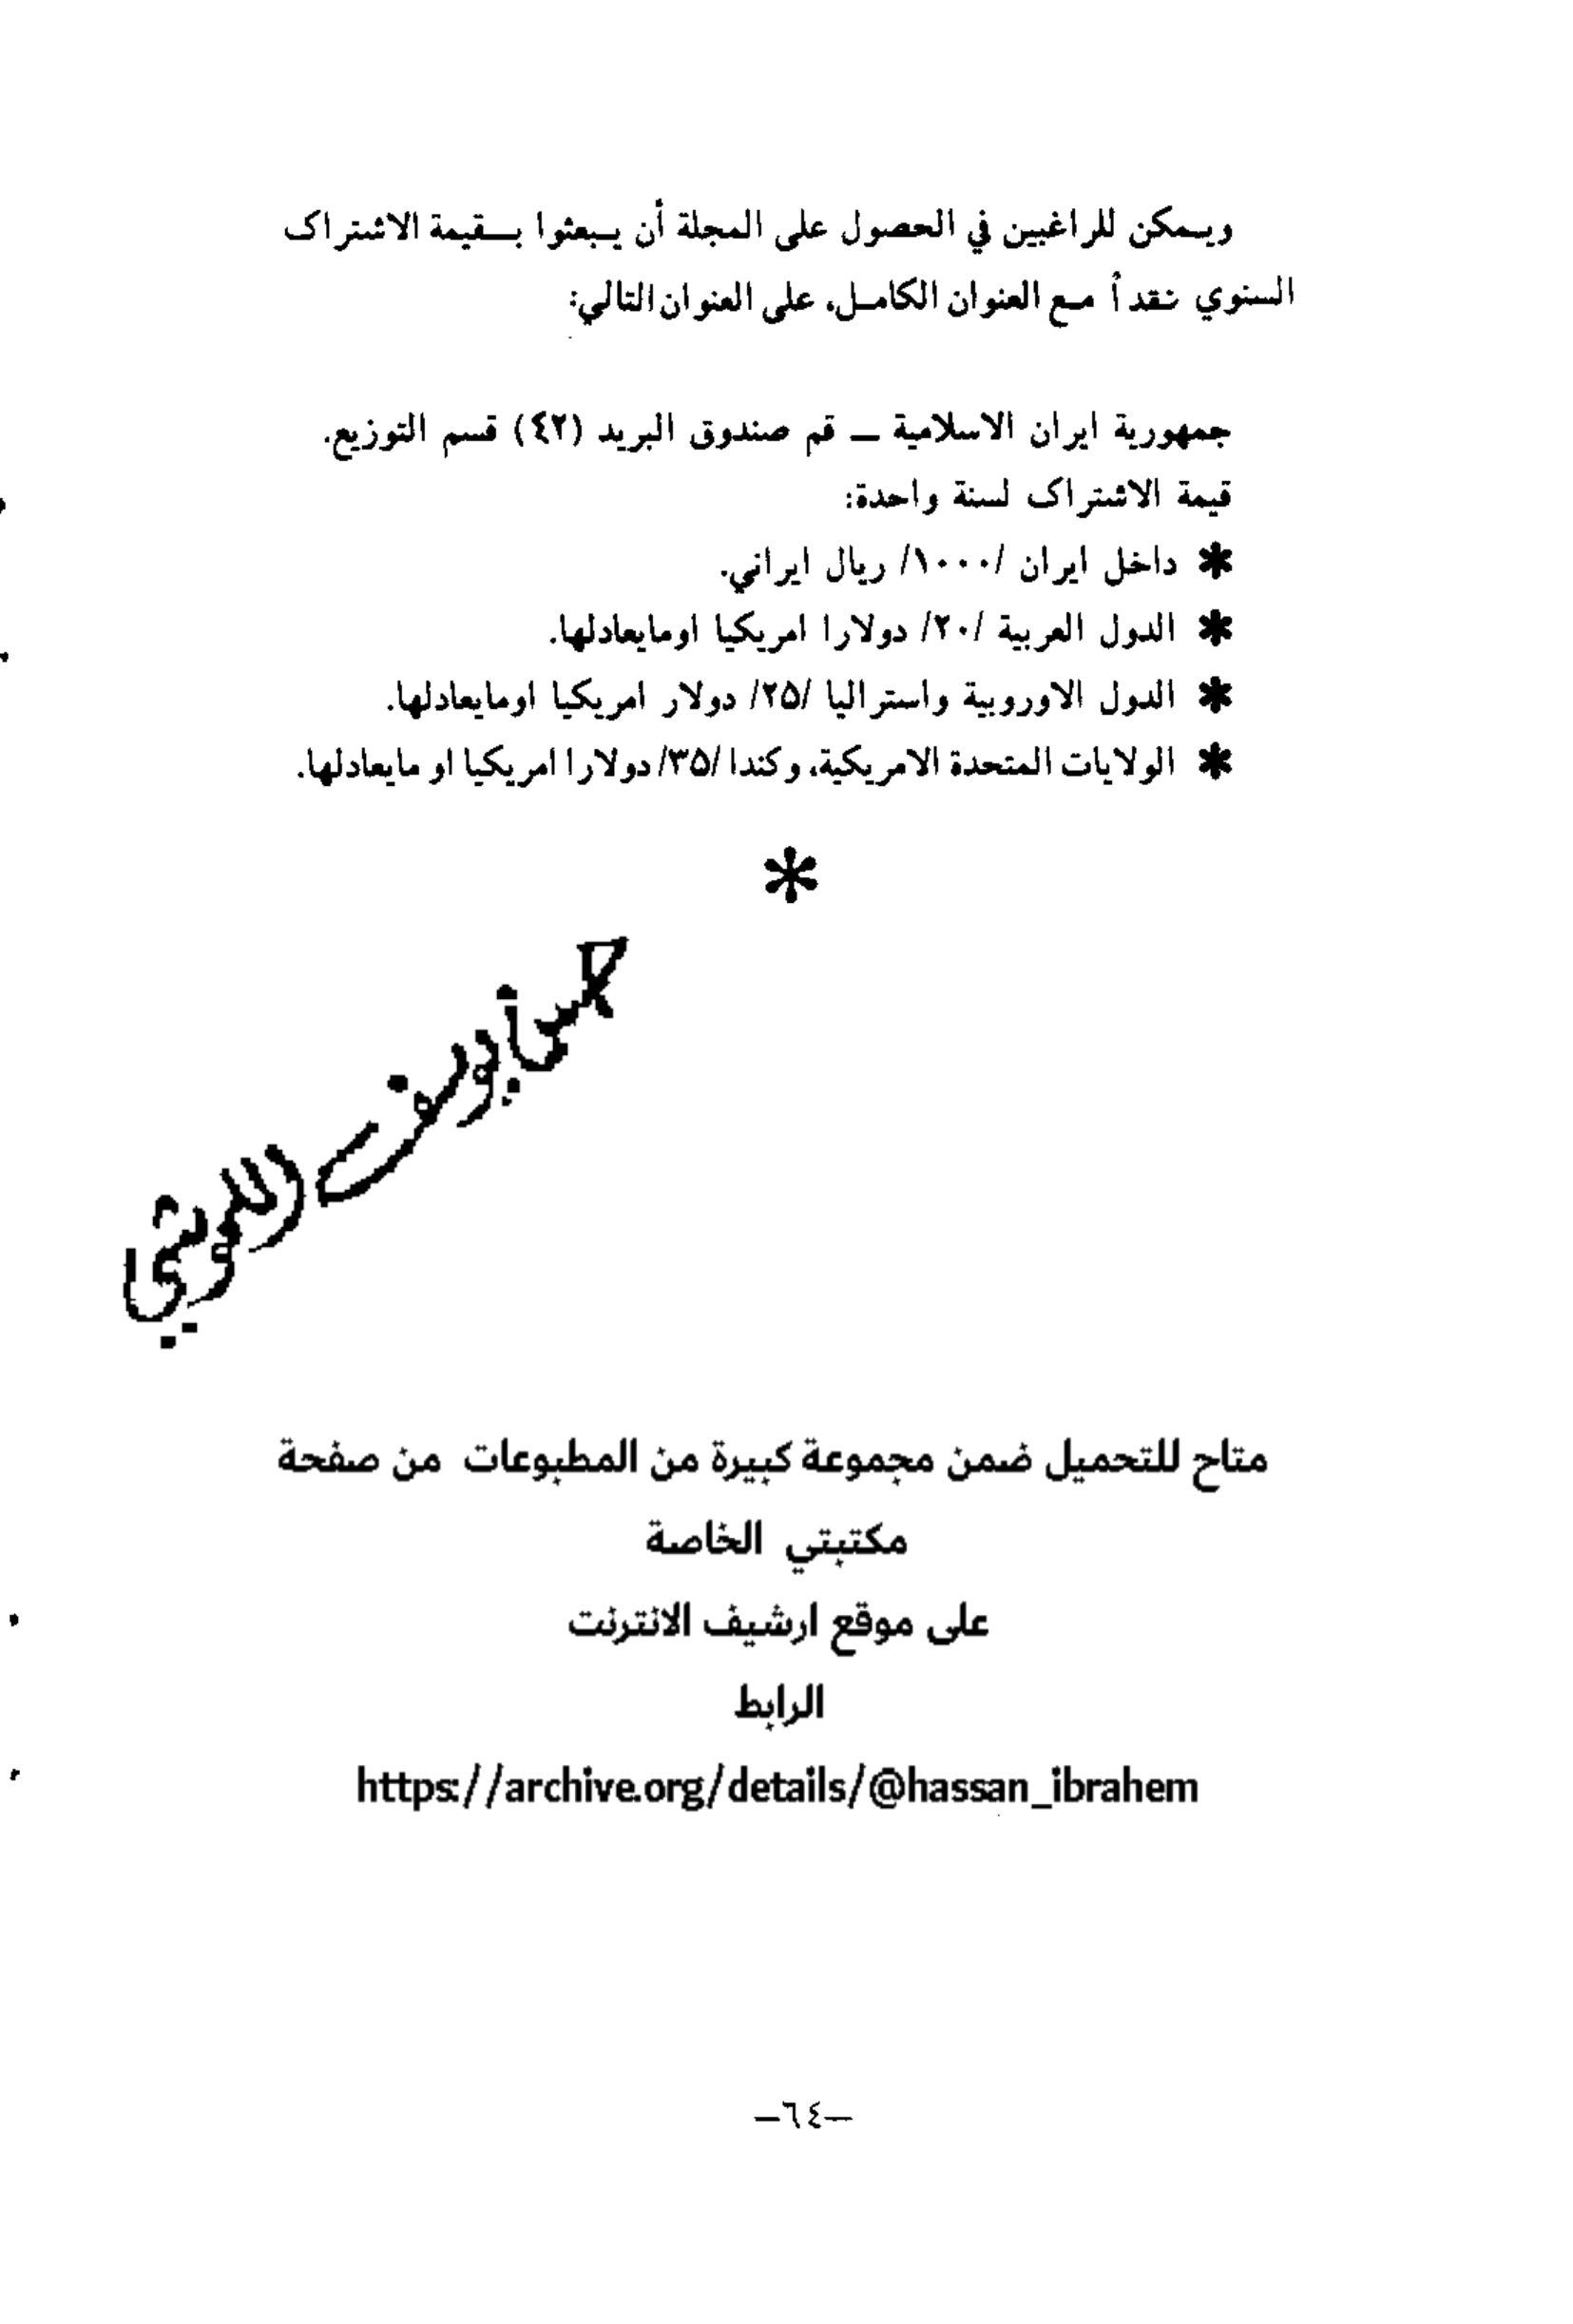 ويـمكن للراغبين في الحصول على المجلة أن يـبعثوا بـقيمة الاشتراك
السنوي نقداً مع العنوان الكامل، على العنوان التالي:
جمهورية ايران الاسلامية ــ قم صندوق البريد (٤٢) قسم التوزيع.
قيمة الاشتراك لسنة واحدة:
✱ داخل ايران /١٠٠٠/ ريال ايراني.
✱ الدول العربية /٢٠/ دولارا امريكيا اومايعادلها.
✱ الدول الاوروبية واستراليا /٢٥/ دولار امريكيا اومايعادلها.
✱ الولايات المتحدة الامريكية، وكندا /٣٥/ دولارا امريكيا او مايعادلها.
*
متاح للتحميل ضمن مجموعة كبيرة من المطبوعات من صفحة
مكتبتي الخاصة
على موقع ارشيف الانترنت
الرابط
https://archive.org/details/@hassan_ibrahem
—٦٤—